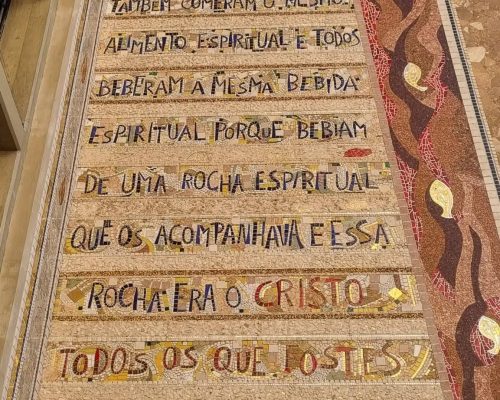 TAMBÉM COMERAM O MESMO
ALIMENTO ESPIRITUAL E TODOS
BEBERAM A MESMA BEBIDA
ESPIRITUAL PORQUE BEBIAM
DE UMA ROCHA ESPIRITUAL
QUE OS ACOMPANHAVA E ESSA
ROCHA ERA O CRISTO
TODOS OS QUE FOSTES